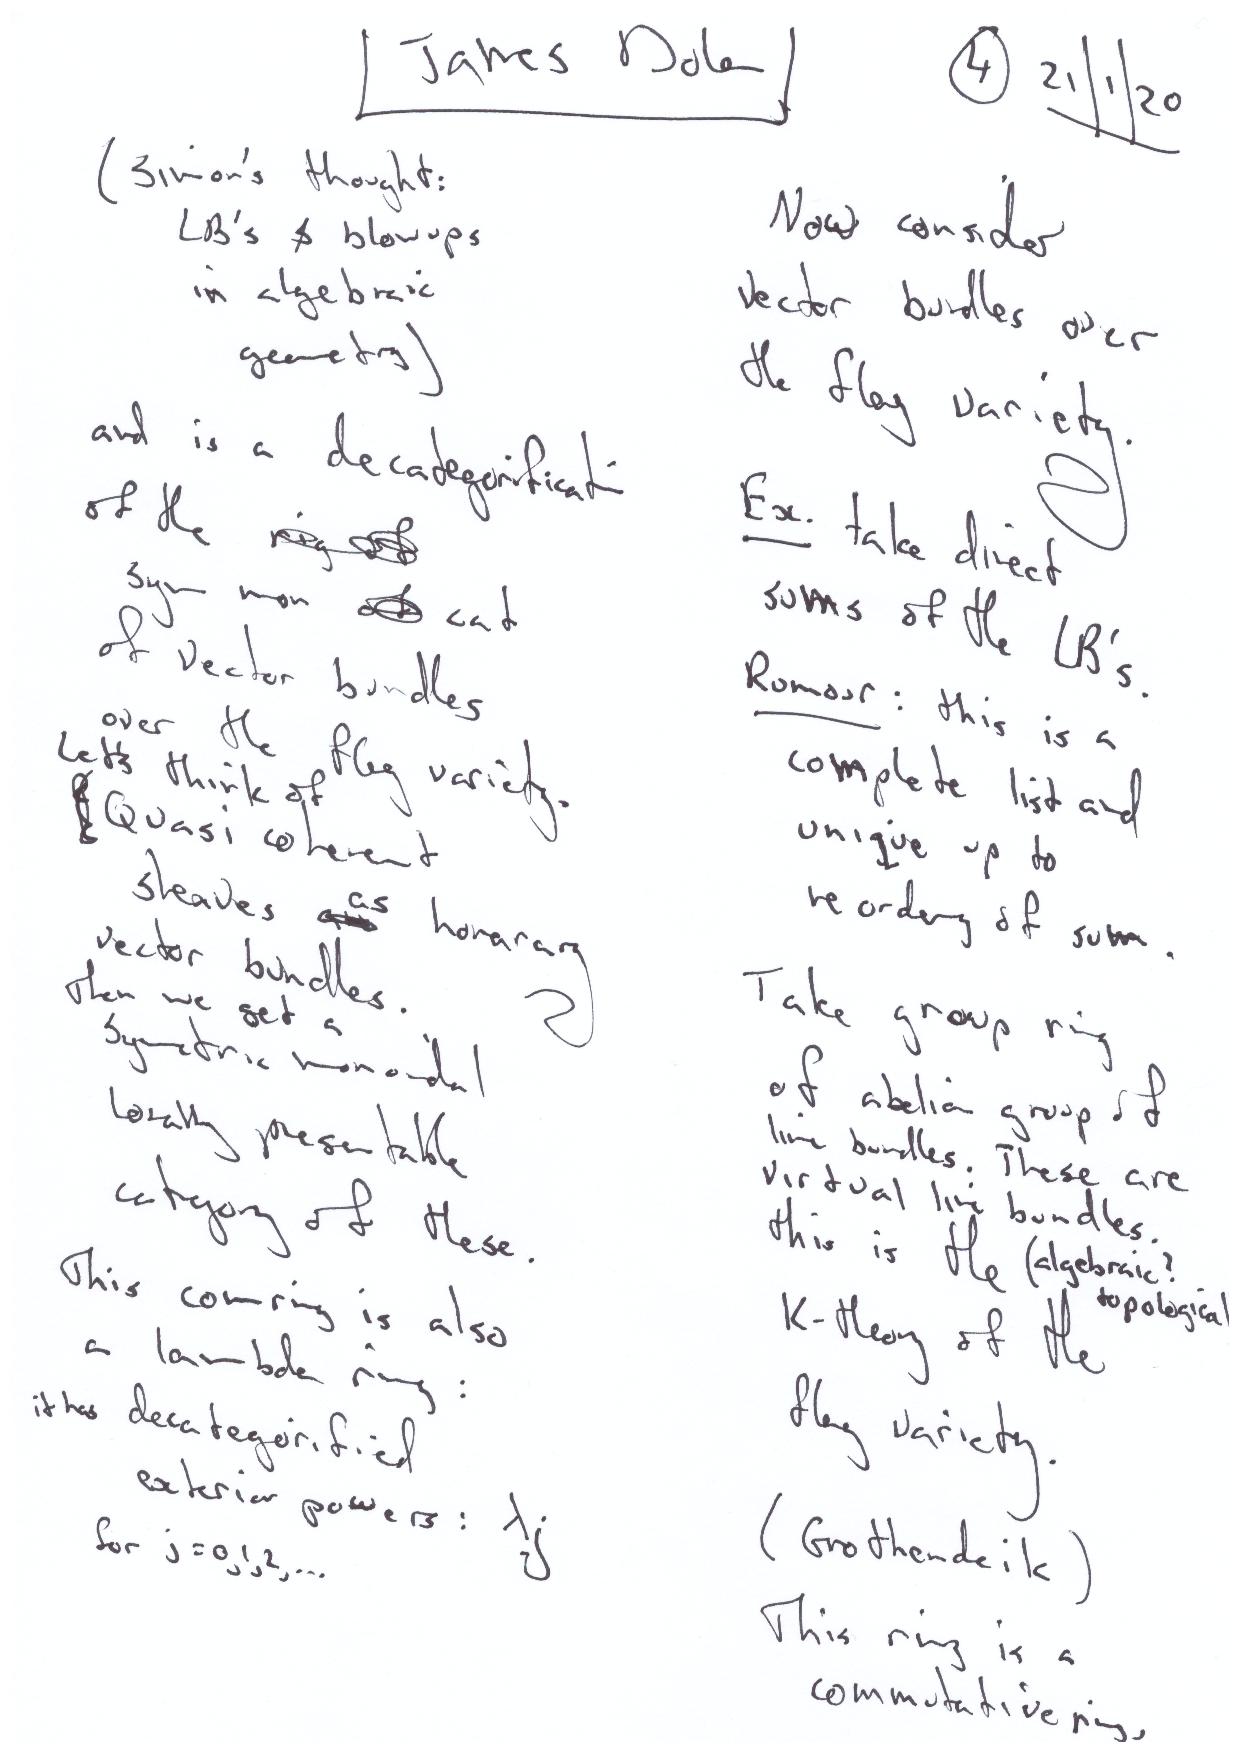 James Dolan
④ 21/1/20
(Simon's thought:
LB's & blowups
in algebraic
geometry)
and is a decategorificati
of the ring of
Sym mon cat
of vector bundles
over the flag variety.
Let's think of
Quasi coherent
sheaves as honarary
vector bundles.
Then we get a
Symmetric monoidal
locally presentable
category of these.
This com ring is also
a lambda ring:
it has decategorified
exterior powers: λj
for j=0,1,2,...
Now consider
vector bundles over
the flag variety.
Ex. take direct
sums of the LB's.
Rumour: this is a
complete list and
unique up to
reordering of sum.
Take group ring
of abelian group of
line bundles. These are
virtual line bundles.
this is the (algebraic?
topological
K-theory of the
flag variety.
(Grothendeik)
This ring is a
commutative ring,